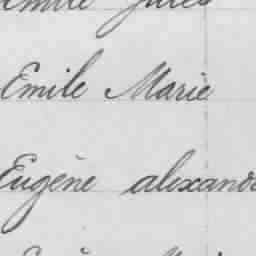 Emile Jules
Emile Marie
Eugène alexand